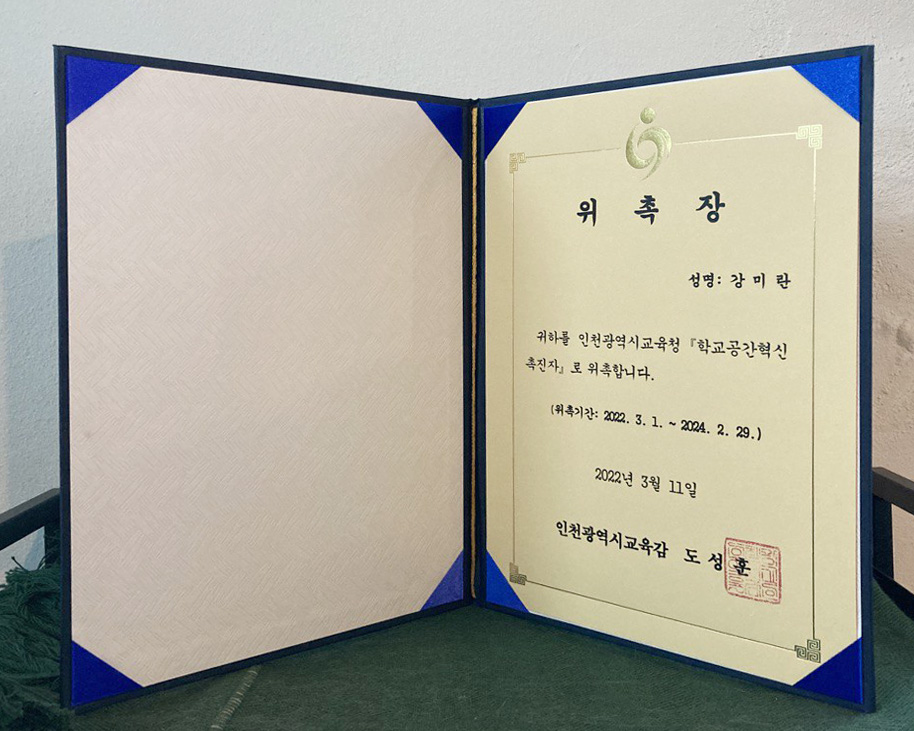 위 촉 장
성명: 강 미 란
귀하를 인천광역시교육청 『학교공간혁신
촉진자』로 위촉합니다.
(위촉기간: 2022. 3. 1. ~ 2024. 2. 29.)
2022년 3월 11일
인천광역시교육감 도 성 훈